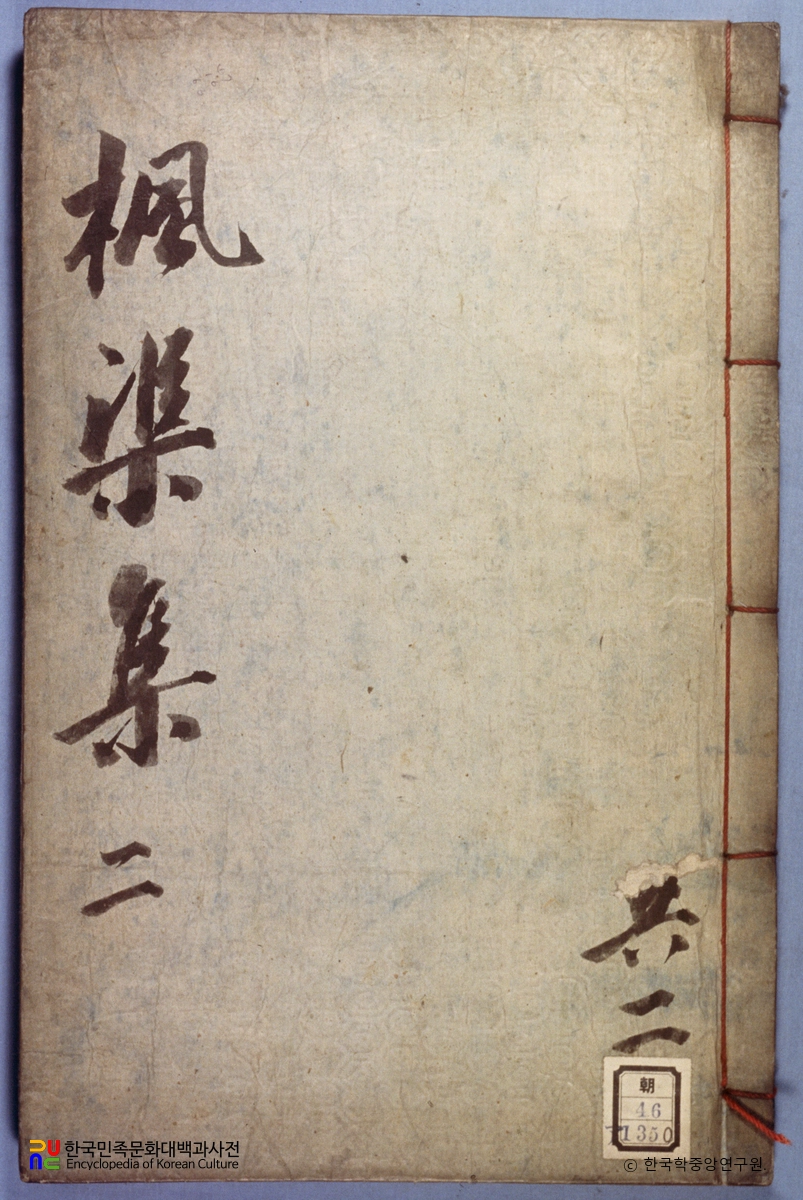 楓渠集 二
共二
朝
46
1350
한국민족문화대백과사전
Encyclopedia of Korean Culture
© 한국학중앙연구원